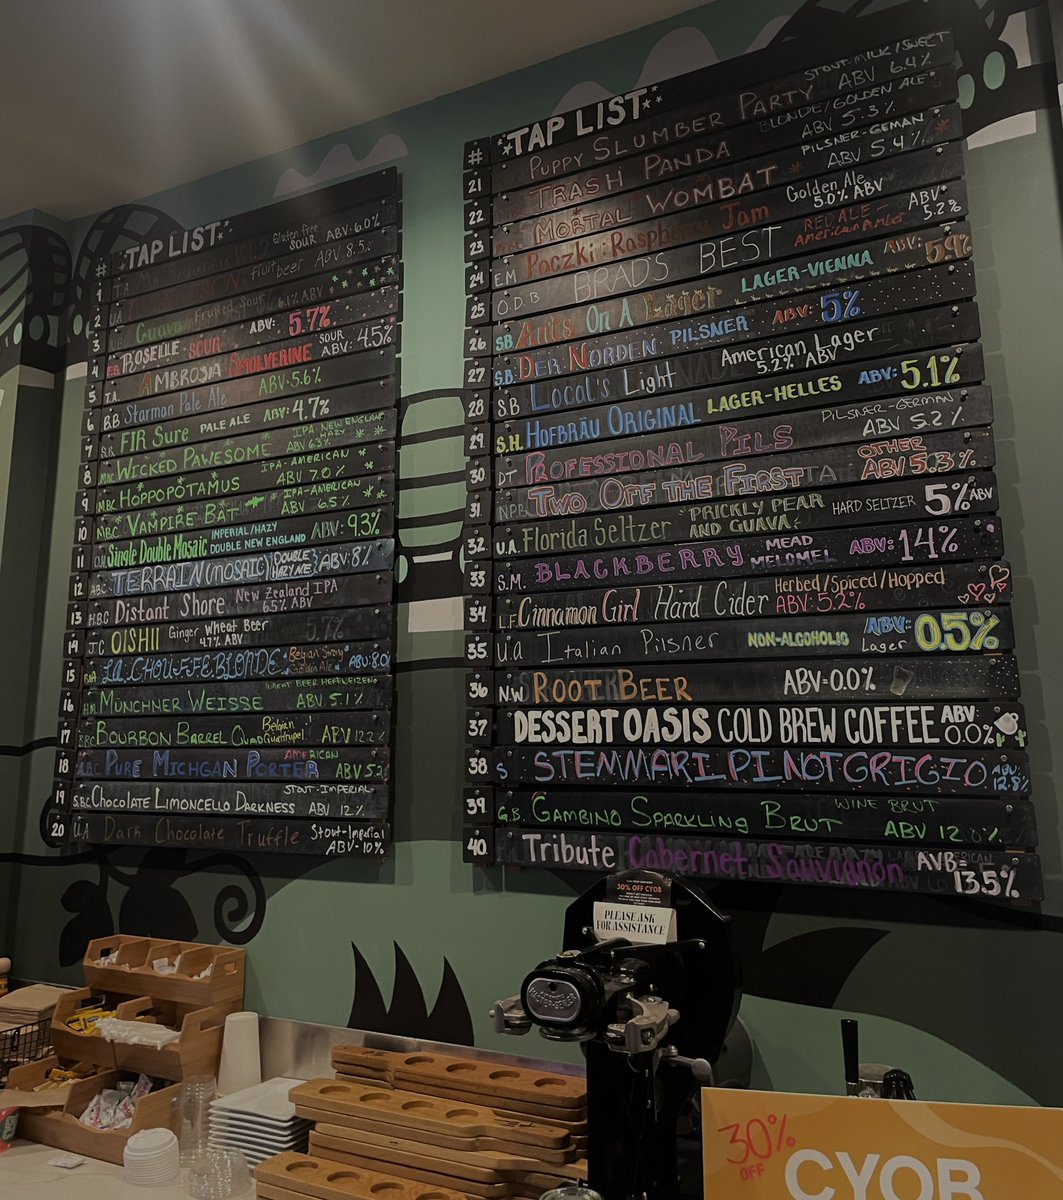 TAP LIST
#
1 T.A. My Vol. 2 Gluten Free SOUR ABV: 6.0%
2 U.A. fruit beer ABV 8.5%
3 Guava Fruited Sour 6.1% ABV
4 ROSELLE SOUR ABV: 5.7%
5 T.A. AMBROSIA SMOLVERINE SOUR ABV: 4.5%
6 B.B Starman Pale Ale ABV 5.6%
7 FIR Sure PALE ALE ABV: 4.7%
8 WICKED PAWESOME IPA-NEW ENGLAND HAZY ABV 6.3%
9 HOPPOPOTAMUS IPA-AMERICAN ABV 7.0%
10 VAMPIRE BAT IPA-AMERICAN ABV 6.5%
11 Single Double Mosaic IMPERIAL/HAZY DOUBLE NEW ENGLAND ABV: 9.3%
12 TERRAIN (MOSAIC) DOUBLE HAZY NE ABV: 8%
13 H.BC Distant Shore New Zealand IPA 6.5% ABV
14 J.C OISHII Ginger Wheat Beer 4.7% ABV 5.7%
15 LA CHOUFFE BLONDE Belgian Strong Golden Ale ABV: 8.0
16 MÜNCHNER WEISSE WHEAT BEER HEFEWEIZEN ABV 5.1%
17 BOURBON BARREL QUAD Belgian Quadrupel ABV 12.2%
18 PURE MICHGAN PORTER AMERICAN ABV 5.2
19 S.BC CHOCOLATE LIMONCELLO DARKNESS STOUT-IMPERIAL ABV 12%
20 U.A. Dark Chocolate Truffle Stout-Imperial ABV-10%
TAP LIST
#
21 PUPPY SLUMBER PARTY STOUT-MILK/SWEET ABV 6.4%
22 TRASH PANDA BLONDE/GOLDEN ALE ABV 5.3%
23 MORTAL WOMBAT PILSNER-GEMAN ABV 5.4%
24 E.M Paczki Raspberry Jam Golden Ale 5.0% ABV
25 O.D.B BRAD'S BEST RED ALE- American Amber ABV- 5.2%
26 S.B. Ants On A Lager LAGER-VIENNA ABV: 5.9%
27 S.B. DER NORDEN PILSNER ABV: 5%
28 S.B Local's Light American Lager 5.2% ABV
29 S.H. HOFBRÄU ORIGINAL LAGER-HELLES ABV: 5.1%
30 DT PROFESSIONAL PILS PILSNER-GERMAN ABV 5.2%
31 N.P.B. TWO OFF THE FIRST OTHER ABV 5.3%
32 U.A. Florida Seltzer "PRICKLY PEAR AND GUAVA" HARD SELTZER 5% ABV
33 S.M. BLACKBERRY MEAD MELOMEL ABV: 14%
34 L.F. Cinnamon Girl Hard Cider Herbed/Spiced/Hopped ABV: 5.2%
35 U.a Italian Pilsner NON-ALCOHOLIC Lager ABV: 0.5%
36 N.W ROOT BEER ABV-0.0%
37 DESSERT OASIS COLD BREW COFFEE ABV: 0.0%
38 S STEMMARI PINOT GRIGIO ABV: 12.8%
39 G.B. GAMBINO SPARKLING BRUT WINE BRUT ABV 12.0%
40 Tribute Cabernet Sauvignon AVB= 13.5%
30% OFF CYOB
PLEASE ASK
FOR ASSISTANCE
30%
OFF
CYOB